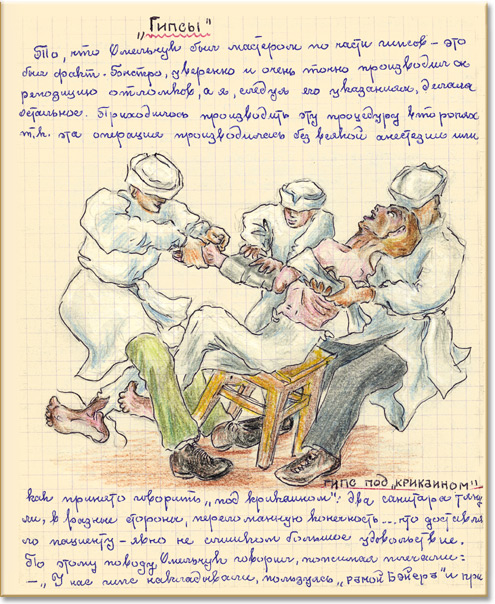 „Гипсы"
То, что Омельчук был мастером по части гипсов – это
был факт. Быстро, уверенно и очень точно производил он
репозицию отломков, а я, следуя его указаниям, делала
остальное. Приходилось производить эту процедуру втроём
т.к. эта операция производилась без всякой анестезии или
гипс под „крикаином"
как принято говорить, „под крикаином": два санитара тяну
ли, в разные стороны, переломанную конечность... что доставля
ло пациенту – явно не слишком большое удовольствие.
По этому поводу Омельчук говорил, пожимая плечами:
– „У нас гипс накладывали, пользуясь „рамой Бэйера" и при